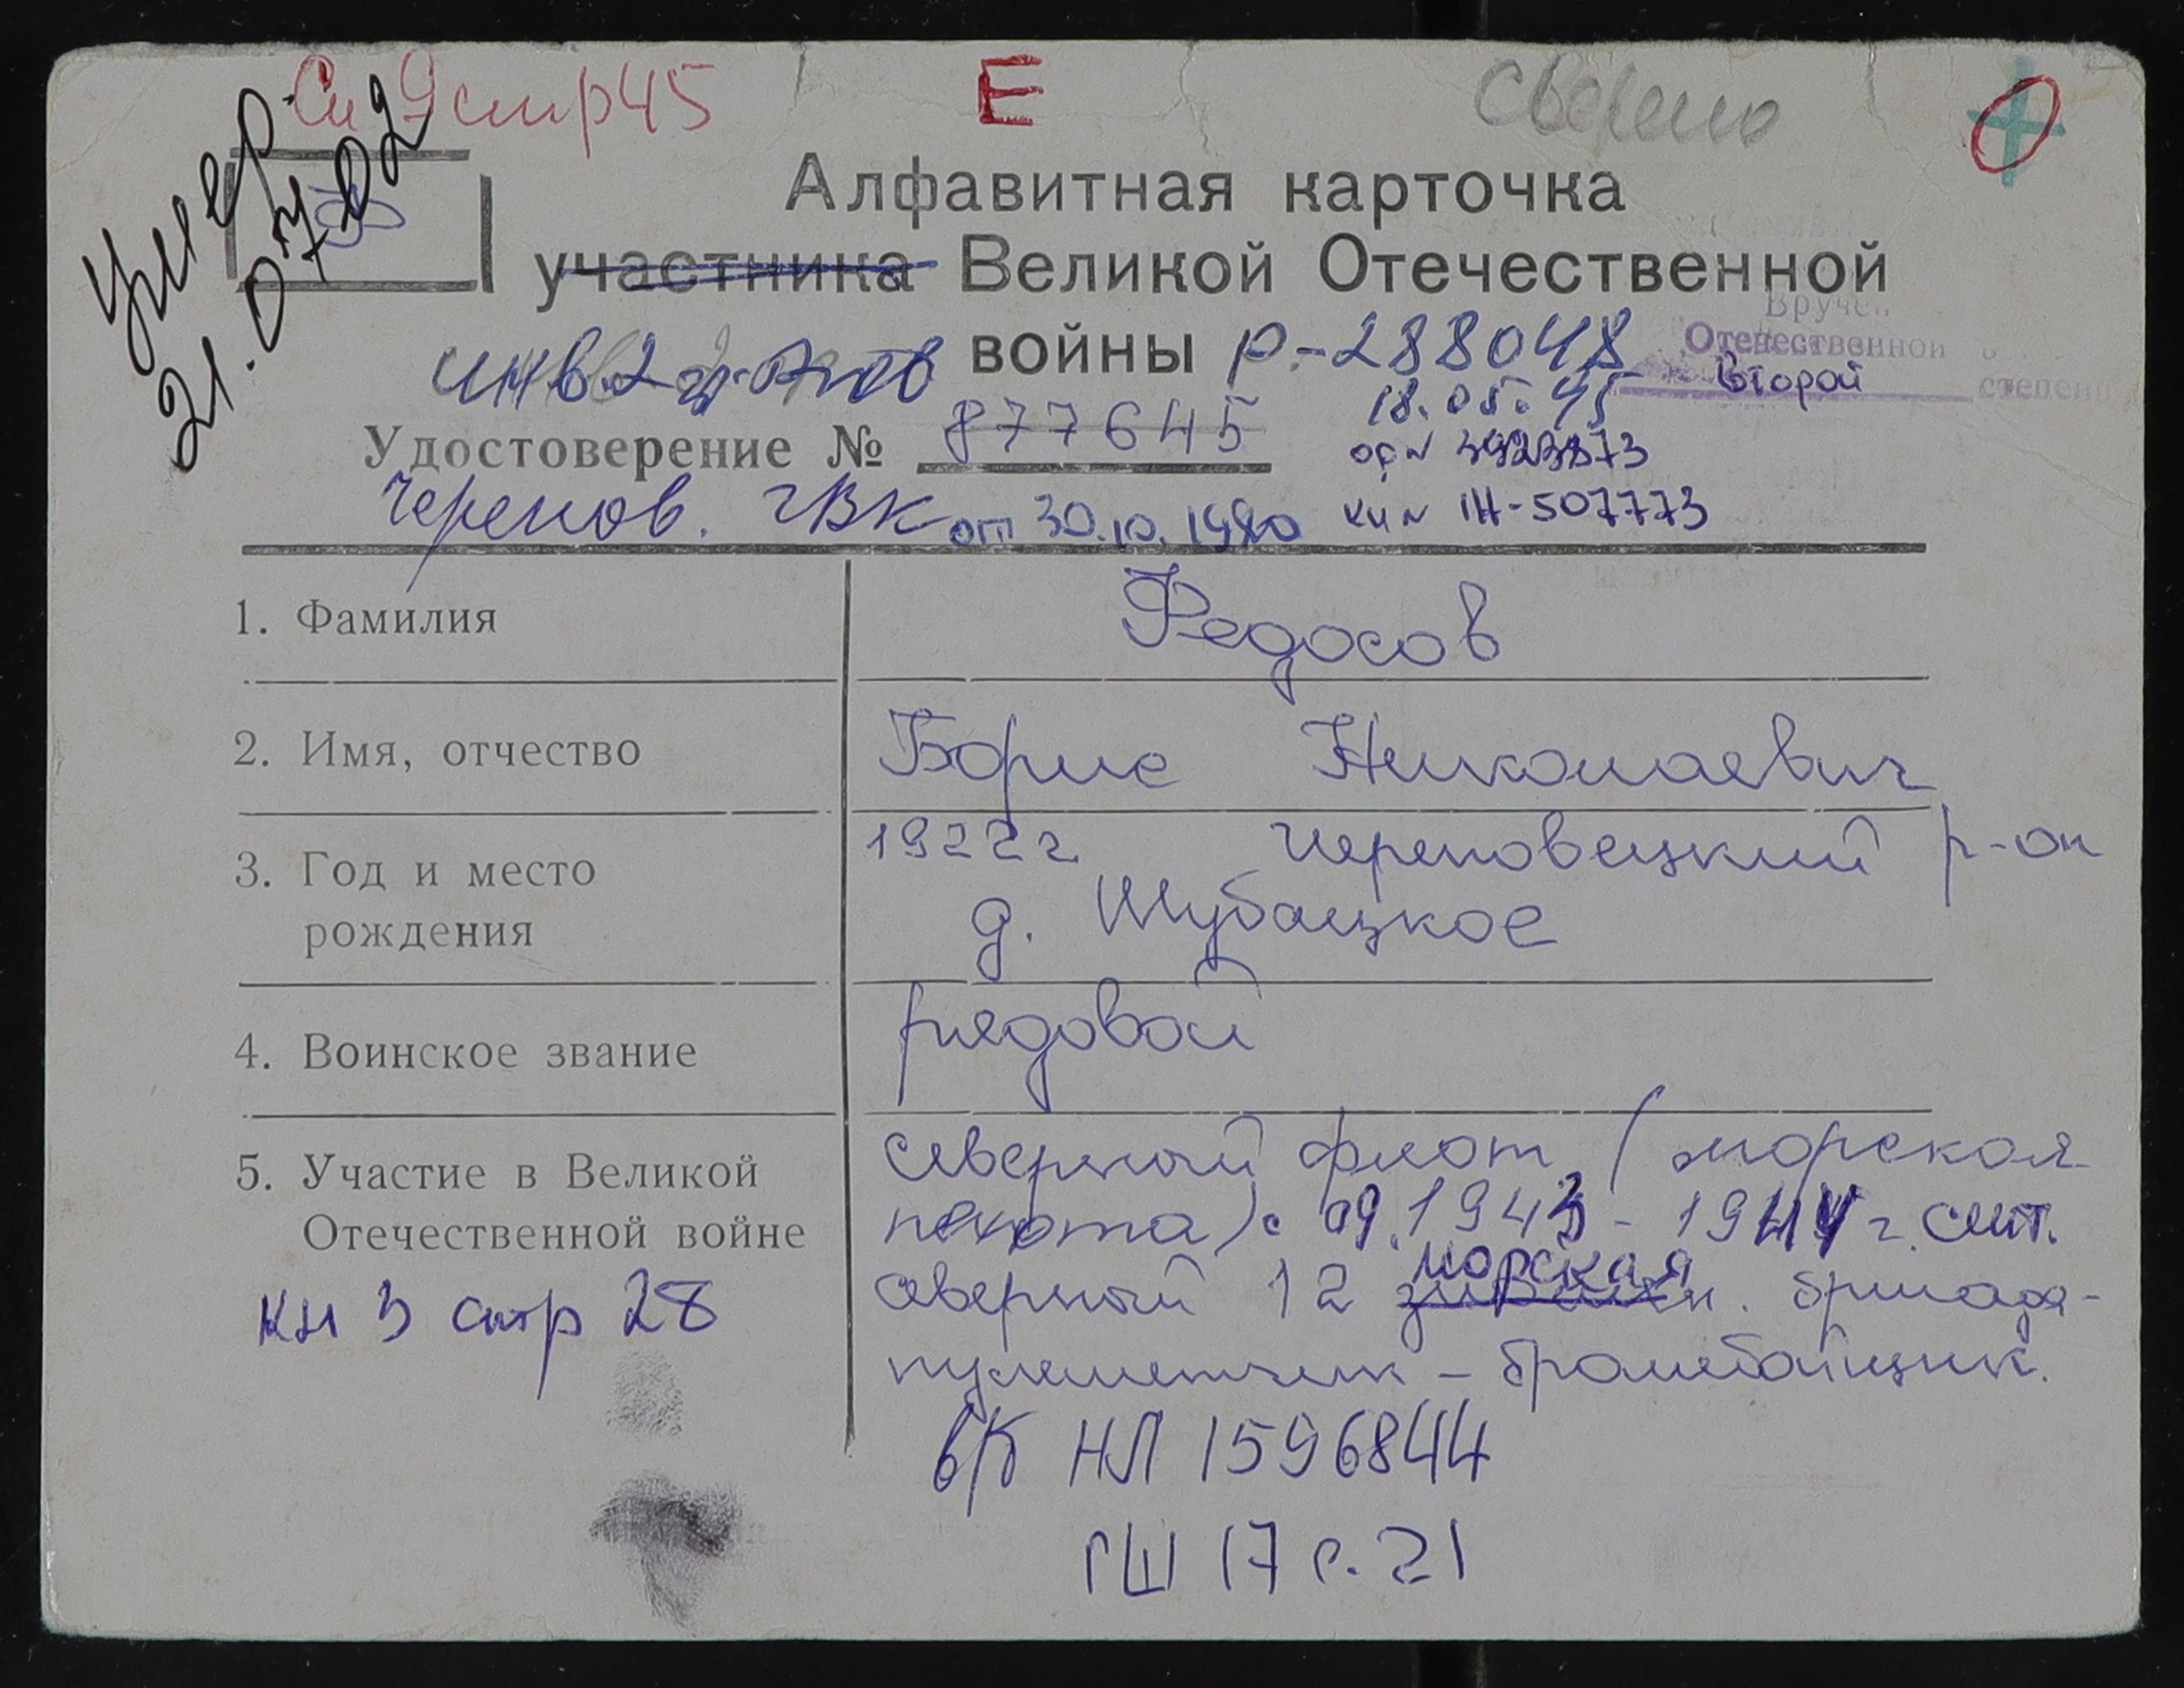 См 9 стр 45
Е
сверено
умер
21.07.02
Алфавитная карточка
участника Великой Отечественной
войны Р-288048
инв. 2 гр.
Вручен
Отечественной
Второй
степени
18.05.45
Удостоверение № 877645
ор № 3923873
Черепов. ГВК от 30.10.1980
кн № IН-507773
1. Фамилия Федосов
2. Имя, отчество Борис Николаевич
3. Год и место 1922 г Череповецкий р-он
рождения д. Шубацкое
4. Воинское звание рядовой
5. Участие в Великой северный флот (морская
Отечественной войне пехота) с 09.1943 - 1944 г. сент.
северный 12 морская бригада -
кн 3 стр 28
пулеметчик - бронебойщик.
б/к НЛ 1596844
ГШ 17 с. 21